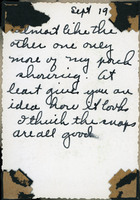 Sept 19
almost like the
other one only
more of my porch
showing. At
least gives you an
idea how it looks
I think the snaps
are all good